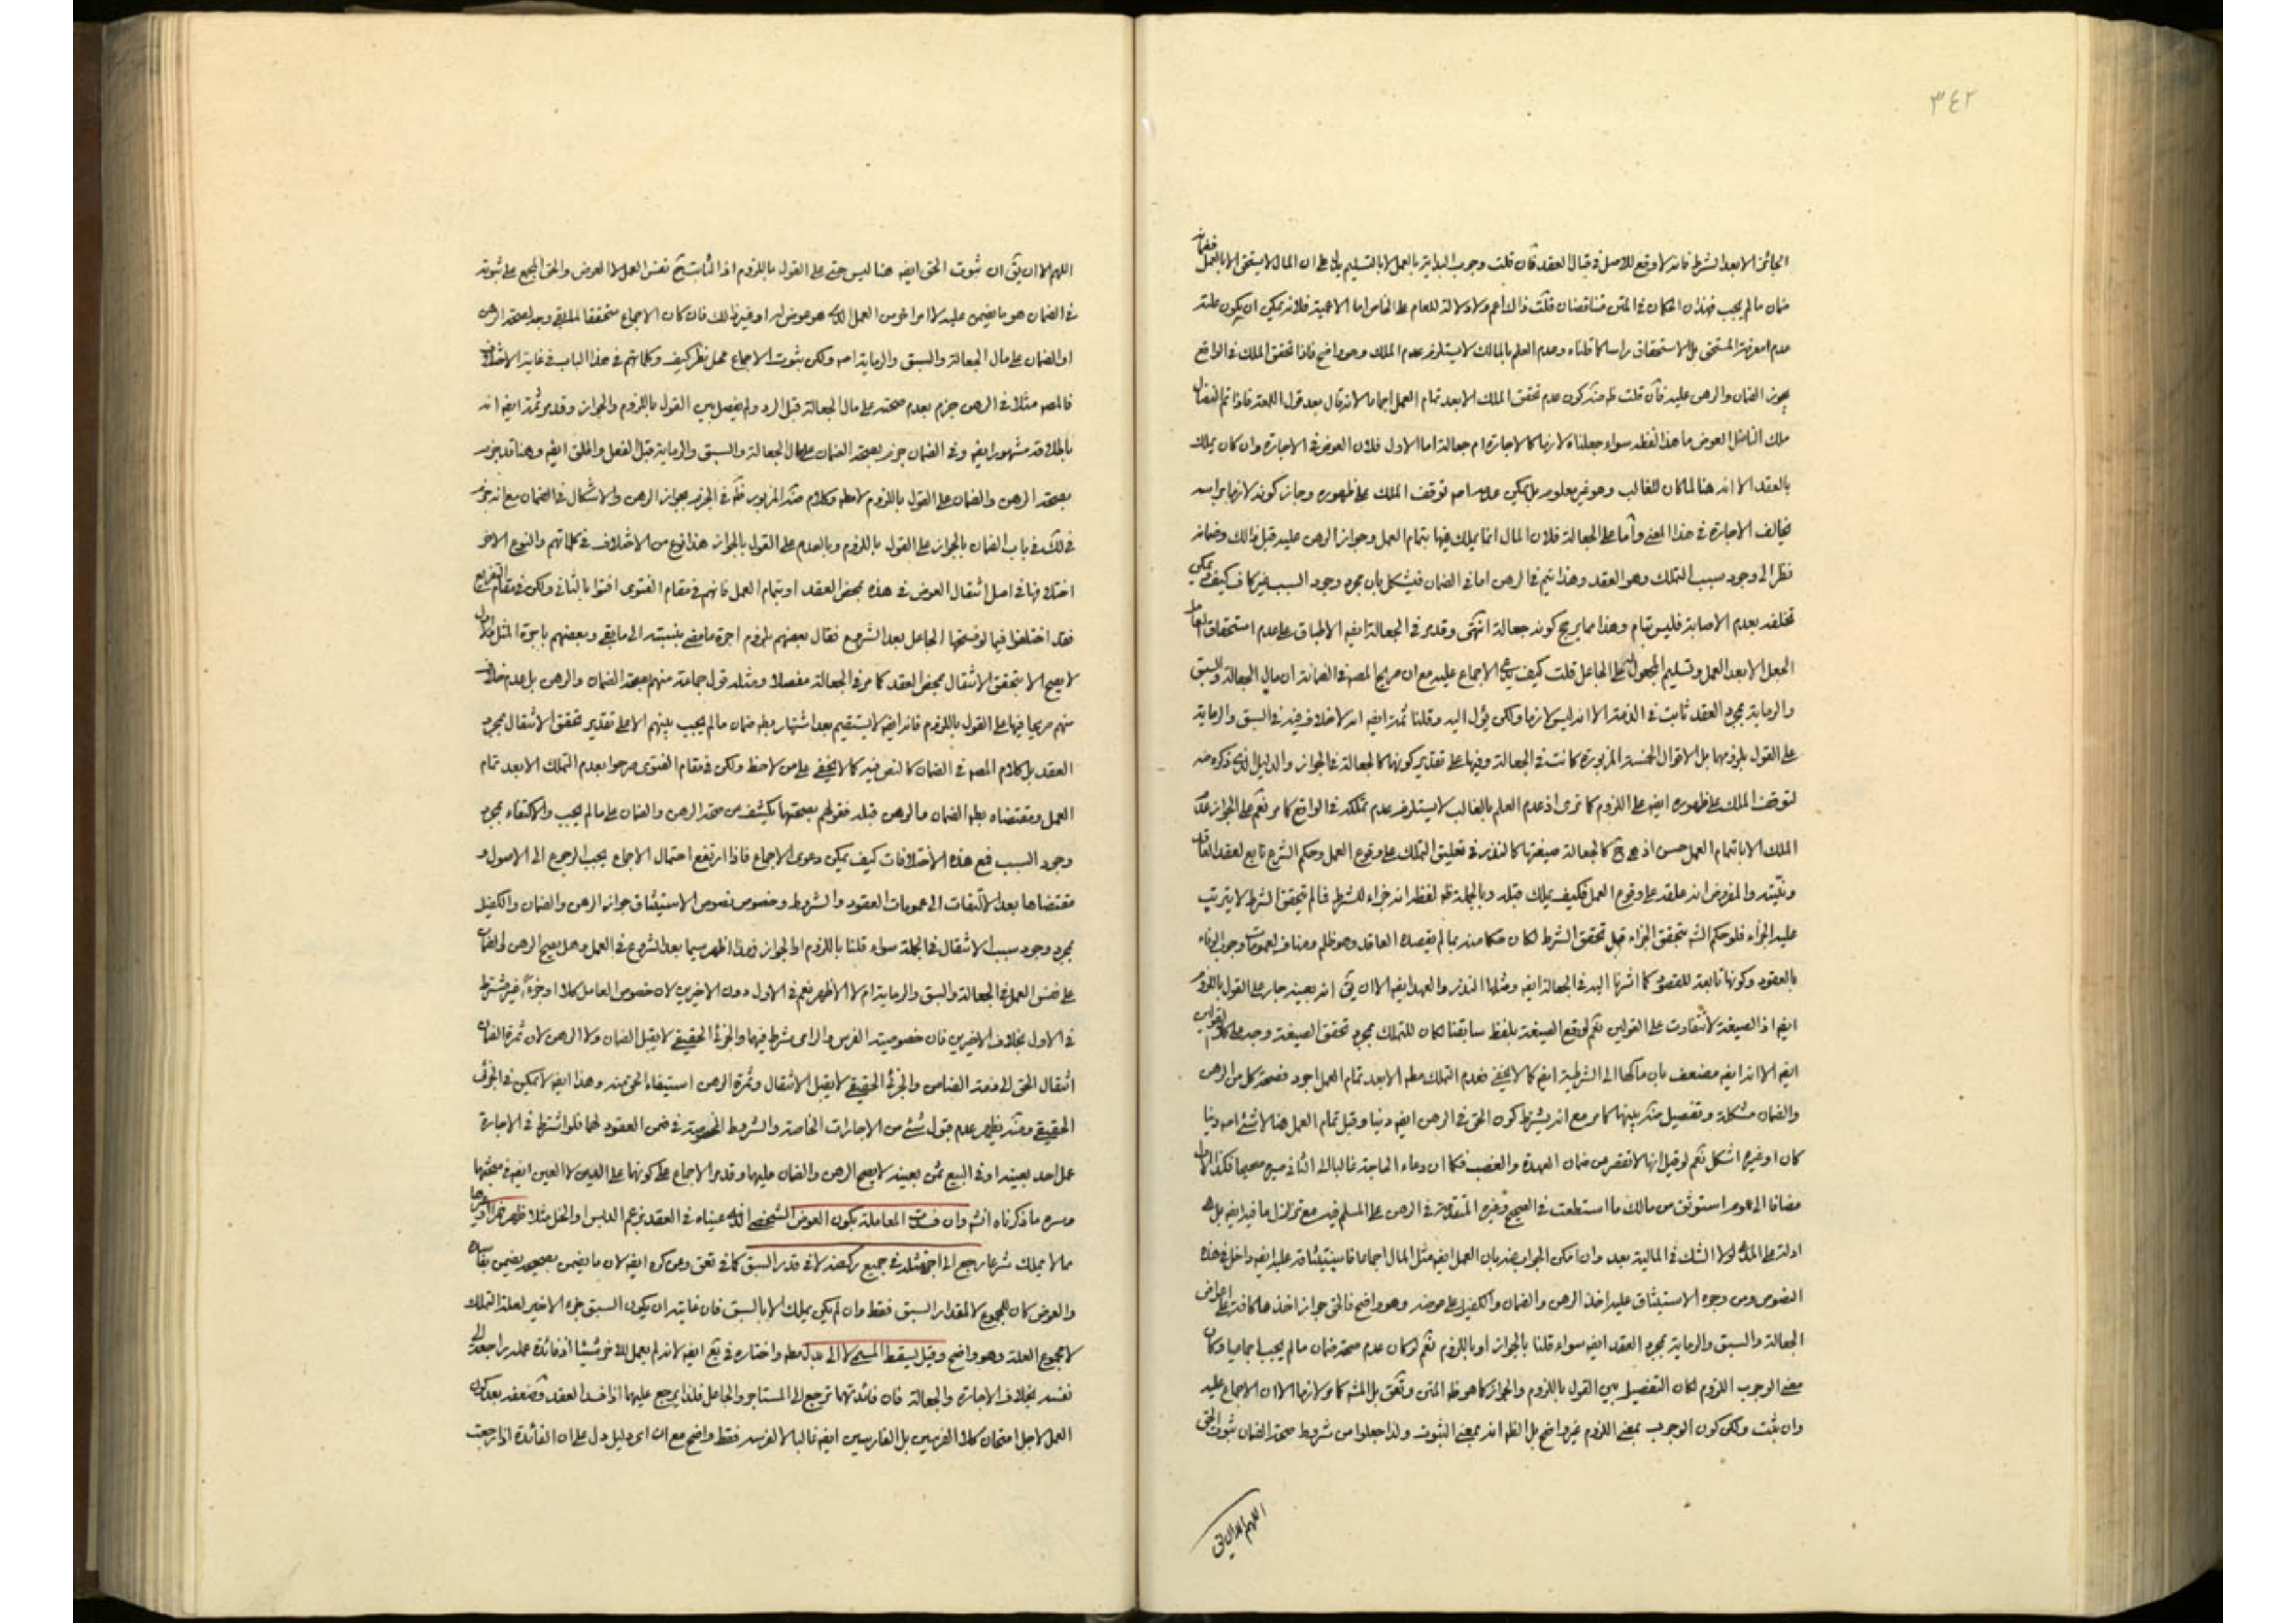 ٣٤٢
الجائز الا بعد الشرط فانه لا وقع للاصل في قبال العقد فان قلت وجوب البداية بالعمل لا بالتسليم يدل على ان المال لا يستحق الا بالعمل فضمانه
ضمان ما لم يجب فهذان الحكمان في المتن متناقضان قلت ذاك اعم ولا دلالة للعام على الخاص اما الاعمية فلانه يمكن ان يكون علته
عدم معرفة المستحق بل الاستحقاق راسا كما قلناه وعدم العلم بالمالك لا يستلزم عدم الملك وهو واضح فاذا تحقق الملك في الواقع
يجوز الضمان والرهن عليه فان قلت ظه كون عدم تحقق الملك الا بعد تمام العمل اجماعا لانه قال بعد قول اللمعة فاذا تم النضال
ملك الناضل العوض ما هذا لفظه سواء جعلناه لازما كالاجارة ام جعالة اما الاول فلان العوض في الاجارة وان كان يملك
بالعقد الا انه هنا لما كان للغالب وهو غير معلوم بل يمكن عدمه توقف الملك على ظهوره وجاز كونه لازما براسه
يخالف الاجارة في هذا المعنى واما على الجعالة فلان المال انما يملك فيها بتمام العمل وجواز الرهن عليه قبل ذلك وضمانه
نظرا الى وجود سبب التملك وهو العقد وهذا يتم في الرهن اما في الضمان فيشكل بان مجرد وجود السبب غير كاف كيف يمكن
تخلفه بعدم الاصابة فليس بتام وهذا مما يرجح كونه جعالة انتهى وقد مر في الجعالة ايضه الاطباق على عدم استحقاق العامل
الجعل الا بعد العمل وتسليم المجعول الى الجاعل قلت كيف الاجماع عليه مع ان صريح المصه في الضمان ان مال الجعالة والسبق
والرماية بمجرد العقد ثابت في الذمة الا انه ليس لازما ولكن يؤل اليه وقلنا ثمة ايضه انه لا خلاف فيه في السبق والرماية
على القول بلزومها بل الاقوال الخمسة المزبورة كانت في الجعالة وفيها على تقدير كونها كالجعالة في الجواز والدليل الذي ذكره
لتوقف الملك على ظهوره ايضه على اللزوم كما ترى اذ عدم العلم بالغالب لا يستلزم عدم تملكه في الواقع كما مر نعم على الجواز عدم
الملك الا باتمام العمل حسن اذ هي ح كالجعالة صيغتها كالنذر في تعليق التملك على وقوع العمل وحكم الشرع تابع لعقد العاقد
ونيته والمفروض انه علقه على وقوع العمل فكيف يملك قبله وبالجملة ظه لفظه انه جزاء للشرط فما لم يتحقق الشرط لا يترتب
عليه الجزاء فلو حكم الشه بتحقق الجزاء قبل تحقق الشرط لكان حكما منه بما لم يقصده العاقد وهو ظلم ومناف لعمومات وجوب الوفاء
بالعقود وكونها تابعة للقصود كما اشرنا اليه في الجعالة ايضه ومثلها النذر والعهد ايضه الا ان يق انه بعينه جار على القول باللزوم
ايضه اذ الصيغة لا تتفاوت على القولين نعم لو وقع الصيغة بلفظ سابقنا لكان للتملك بمجرد تحقق الصيغة وجه على القولين
ايضه الا انه ايضه مضعف بان مآلها الى الشرطية ايضه كما لا يخفى فعدم التملك مطه الا بعد تمام العمل اجود فصحة كل من الرهن
والضمان مشكلة وتفصيل بينهما كما مر مع انه يشترط كون الحق في الرهن ايضه دينا وقبل تمام العمل هنا لا شئ دينا
كان او غيره اشكل نعم لو قيل انها لا تقصر من ضمان العهدة والغصب فكما ان دعاء الحاجة غالبا الى الثاني صيره صحيحا فكذا الاول
مضافا الى عموم استوثق من مالك ما استطعت في الصحيح وغيره المتقدمة في الرهن على المسلم فيه مع تزلزل ما فيه ايضه بل هي
ادلة لولا الشك في المالية بعد وان امكن الجواب عنه بان العمل ايضه مثل المال اجماعا فاستيثاقه عليه ايضه داخل في هذه
النصوص ومن وجوه الاستيثاق عليه اخذ الرهن والضمان والكفيل على عوضه وهو واضح فالحق جواز اخذها كافة على اعواض
الجعالة والسبق والرماية بمجرد العقد ايضه سواء قلنا بالجواز او باللزوم نعم لو كان عدم صحة ضمان ما لم يجب اجماعيا وكان
معنى الوجوب اللزوم لكان التفصيل بين القول باللزوم والجواز كما هو ظه المتن و بل المشه كما مر لازما الا ان الاجماع عليه
وان ثبت ولكن كون الوجوب بمعنى اللزوم غير واضح بل الظه انه بمعنى الثبوت ولذا جعلوا من شروط صحة الضمان ثبوت الحق
اللهم الا ان يق
اللهم الا ان يق ان ثبوت الحق ايضه هنا ليس حتى على القول باللزوم اذ الثابت ح نفس العمل لا العوض والحق المجمع على ثبوته
في الضمان هو ما يضمن عليه لا امر اخر من العمل الذي هو عوض له او غير ذلك فان كان الاجماع متحققا وجه لصحة الرهن
او الضمان على مال الجعالة والسبق والرماية ولكن ثبوت الاجماع محل نظر كيف وكلماتهم في هذا الباب في غاية الاختلاف
فالمصه مثلا في الرهن جزم بعدم صحته على مال الجعالة قبل الرد ولم يفصل بين القول باللزوم والجواز وقد مر ثمة ايضه انه
باطلاقه مشهور ايضه وفي الضمان جزم بصحة الضمان على مال الجعالة والسبق والرماية قبل الفعل واطلق ايضه وهنا قد جزم
بصحة الرهن والضمان على القول باللزوم لا مطه وكلام المزبور ظه في الجزم بجواز الرهن والاشكال في الضمان مع انه جزم
في لك في باب الضمان بالجواز على القول باللزوم وبالعدم على القول بالجواز هذا نوع من الاختلاف في كلماتهم والنوع الاخر
اختلافها في اصل انتقال العوض في هذه بمحض العقد او بتمام العمل فانهم في مقام الفتوى افتوا بالثاني ولكن في مقام التفريع
فقد اختلفوا فيما لو فسخها الجاعل بعد الشروع فقال بعضهم يلزم اجرة ما مضى بنسبته الى ما بقي وبعضهم باجرة المثل والاول
لا يصح الا بتحقق الانتقال بمحض العقد كما مر في الجعالة مفصلا ومثله قول جماعة منهم بصحة الضمان والرهن بل عدم خلاف
منهم صريحا فيها على القول باللزوم فانه ايضه لا يستقيم بعد اشتهار بطه ضمان ما لم يجب بينهم الا على تقدير تحقق الانتقال بمجرد
العقد بل كلام المصه في الضمان كالنص فيه كما لا يخفى على من لاحظ ولكن في مقام الفتوى صرحوا بعدم التملك الا بعد تمام
العمل ومقتضاه بطه الضمان والرهن قبله فقولهم بصحتها يكشف من صحة الرهن والضمان على ما لم يجب والاكتفاء بمجرد
وجود السبب فمع هذه الاختلافات كيف يمكن دعوى الاجماع فاذا ارتفع احتمال الاجماع يجب الرجوع الى الاصول و
مقتضاها بعد الالتفات الى عمومات العقود والشروط وخصوص نصوص الاستيثاق جواز الرهن والضمان والكفيل
بمجرد وجود سبب الانتقال في الجملة سواء قلنا باللزوم او الجواز وهذا اظهر سيما بعد الشروع في العمل وهل يصح الرهن او الضمان
على نفس العمل في الجعالة والسبق والرماية ام لا الاظهر نعم في الاول دون الاخيرين لان خصوص العامل كلا او جزءا غير شرط
في الاول بخلاف الاخيرين فان خصوصية الفرس والرامي شرط فيهما والجزئي الحقيقي لا يقبل الضمان ولا الرهن لان ثمرة الضمان
انتقال الحق الى ذمة الضامن والجزئي الحقيقي لا يقبل الانتقال وثمرة الرهن استيفاء الحق منه وهذا ايضه لا يمكن في الجزئي
الحقيقي ومنه يظهر عدم قبول شئ من الاجارات الخاصة والشروط المخصوصة في ضمن العقود لهما فلو اشترط في الاجارة
عمل احد بعينه او في البيع ثمن بعينه لا يصح الرهن والضمان عليهما وقد مر الاجماع على كونها على الدين لا العين ايضه في مبحثها
وسره ما ذكرناه انشه وان فسدت المعاملة بكون العوض الشخصي الذي عيناه في العقد بزعم الدبس او الخل مثلا ظهر خمرا او نحوها
مما لا يملك شرعا رجع الى اجرة مثله في جميع ركضه لا في قدر السبق كما في تعق ومن كره ايضه لان ما يضمن بصحيحه يضمن بفاسده
والعوض كان للمجموع لا لمقدار السبق فقط وان لم يكن يملك الا بالسبق فان غايته ان يكون السبق جزء الاخير لعلة التملك
لا مجموع العلة وهو واضح وقيل يسقط المسمى لا الى بدل مطه واختاره في يع ايضه لانه لم يعمل للاخر شيئا اذ فائدة عمله راجعة الى
نفسه بخلاف الاجارة والجعالة فان فائدتهما ترجع الى المستاجر والجاعل فلذا يرجع عليهما اذا فسد العقد وضعفه بعد كون
العمل لاجل امتحان كلا الفرسين بل الفارسين ايضه غالبا لا لفرسه فقط واضح مع ان اي دليل دل على ان الفائدة اذا رجعت